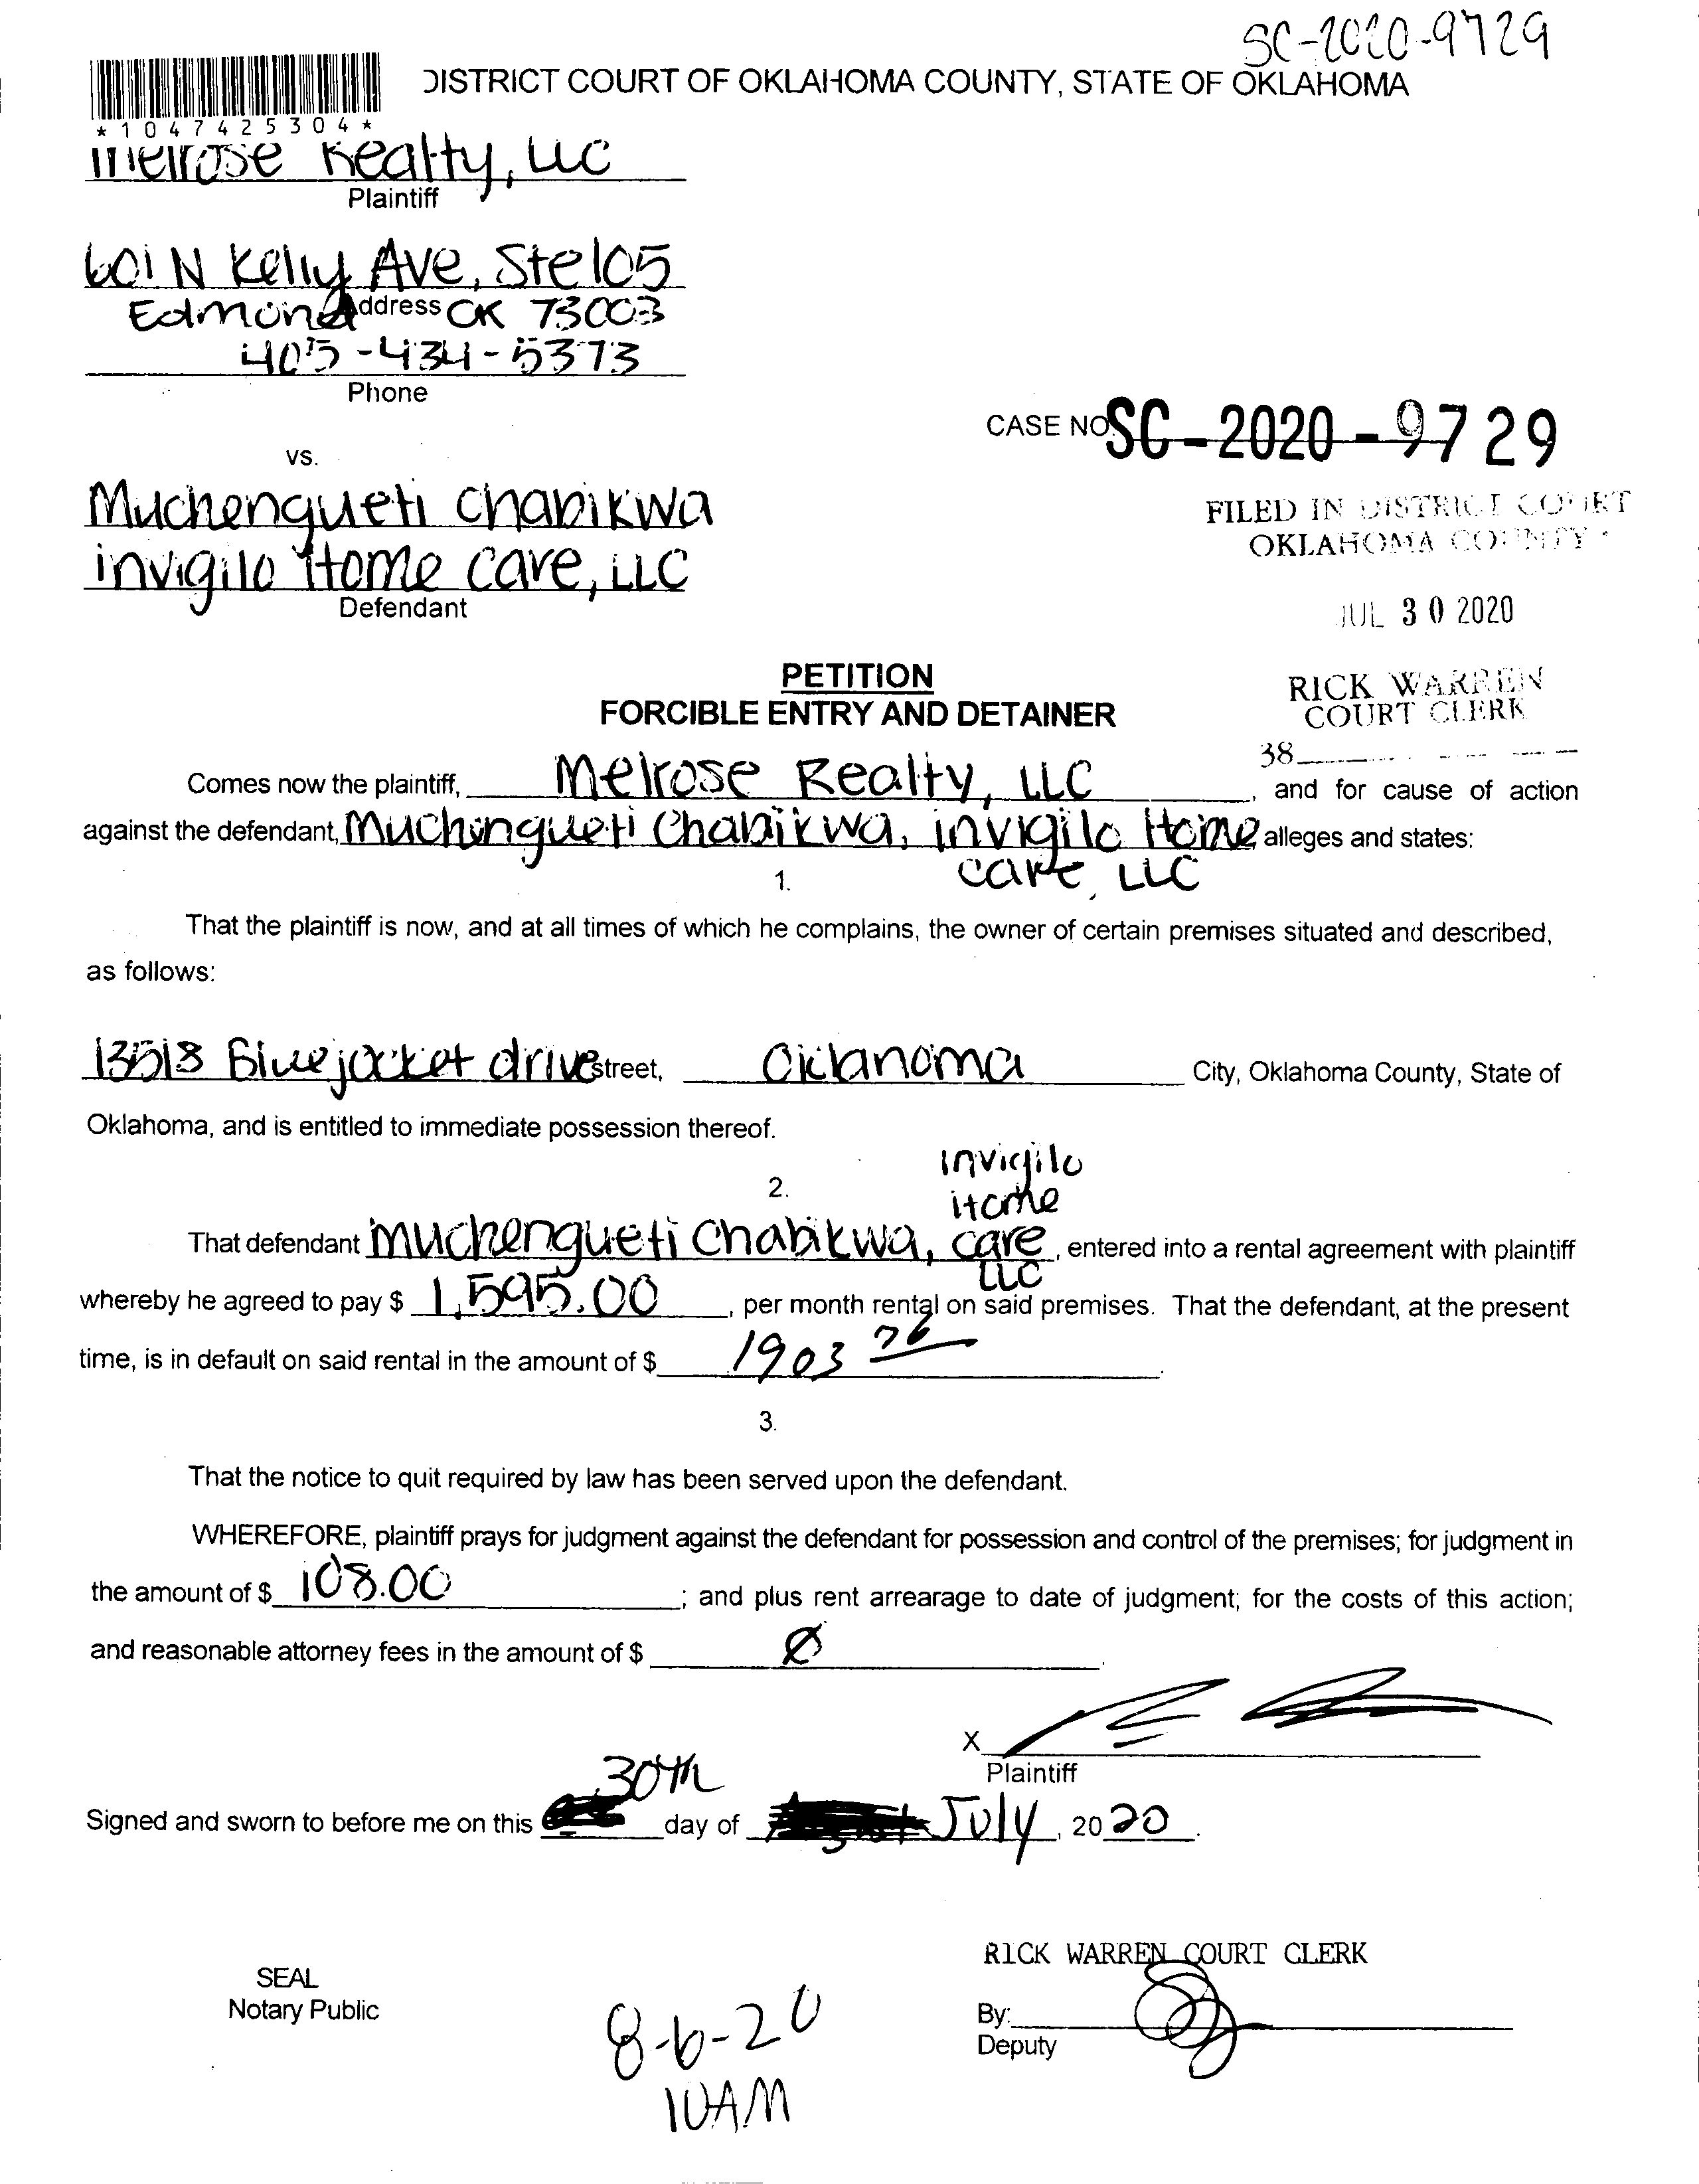 SC-2020-9729
DISTRICT COURT OF OKLAHOMA COUNTY, STATE OF OKLAHOMA
*1047425304*
Melrose Realty, LLC
Plaintiff
601 N Kelly Ave, Ste 105
Address
Edmond OK 73003
405-434-5373
Phone
CASE NO. SC-2020-9729
vs.
Muchengueti Chabikwa
invigilo Home Care, LLC
Defendant
FILED IN DISTRICT COURT
OKLAHOMA COUNTY
JUL 30 2020
RICK WARREN
COURT CLERK
38
PETITION
FORCIBLE ENTRY AND DETAINER
Comes now the plaintiff, Melrose Realty, LLC, and for cause of action
against the defendant, Muchengueti Chabikwa, invigilo Home alleges and states:
care, LLC
1.
That the plaintiff is now, and at all times of which he complains, the owner of certain premises situated and described,
as follows:
13518 Bluejacket drive street, Oklahoma City, Oklahoma County, State of
Oklahoma, and is entitled to immediate possession thereof.
2.
invigilo
Home
That defendant Muchengueti Chabikwa, care, entered into a rental agreement with plaintiff
LLC
whereby he agreed to pay $ 1,595.00, per month rental on said premises. That the defendant, at the present
time, is in default on said rental in the amount of $ 1903 76.
3.
That the notice to quit required by law has been served upon the defendant.
WHEREFORE, plaintiff prays for judgment against the defendant for possession and control of the premises; for judgment in
the amount of $ 108.00; and plus rent arrearage to date of judgment; for the costs of this action;
and reasonable attorney fees in the amount of $ Ø.
X
Plaintiff
30th
Signed and sworn to before me on this day of July, 2020.
RICK WARREN COURT CLERK
SEAL
Notary Public
By:
Deputy
8-6-20
10AM